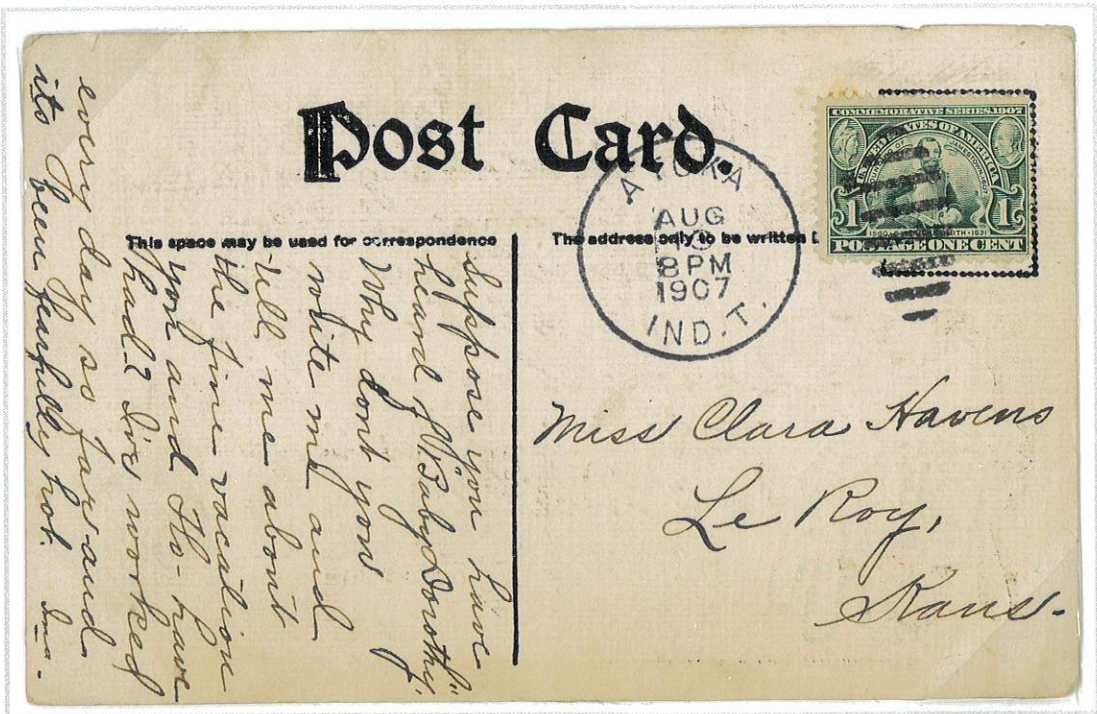 Post Card
This space may be used for correspondence
The address only to be written
ATOKA
AUG
8 PM
1907
IND. T.
COMMEMORATIVE SERIES 1907
UNITED STATES OF AMERICA
JAMESTOWN 1607
1 1
1580 CAPT JOHN SMITH 1631
POSTAGE ONE CENT
Suppose you have
heard of "Baby Dorothy".
Why dont you
write me and
tell me about
the fine vacation
you and Flo- have
had? I've worked
every day so far and
its been fearfully hot. Ima.
Miss Clara Havens
Le Roy,
Kans.